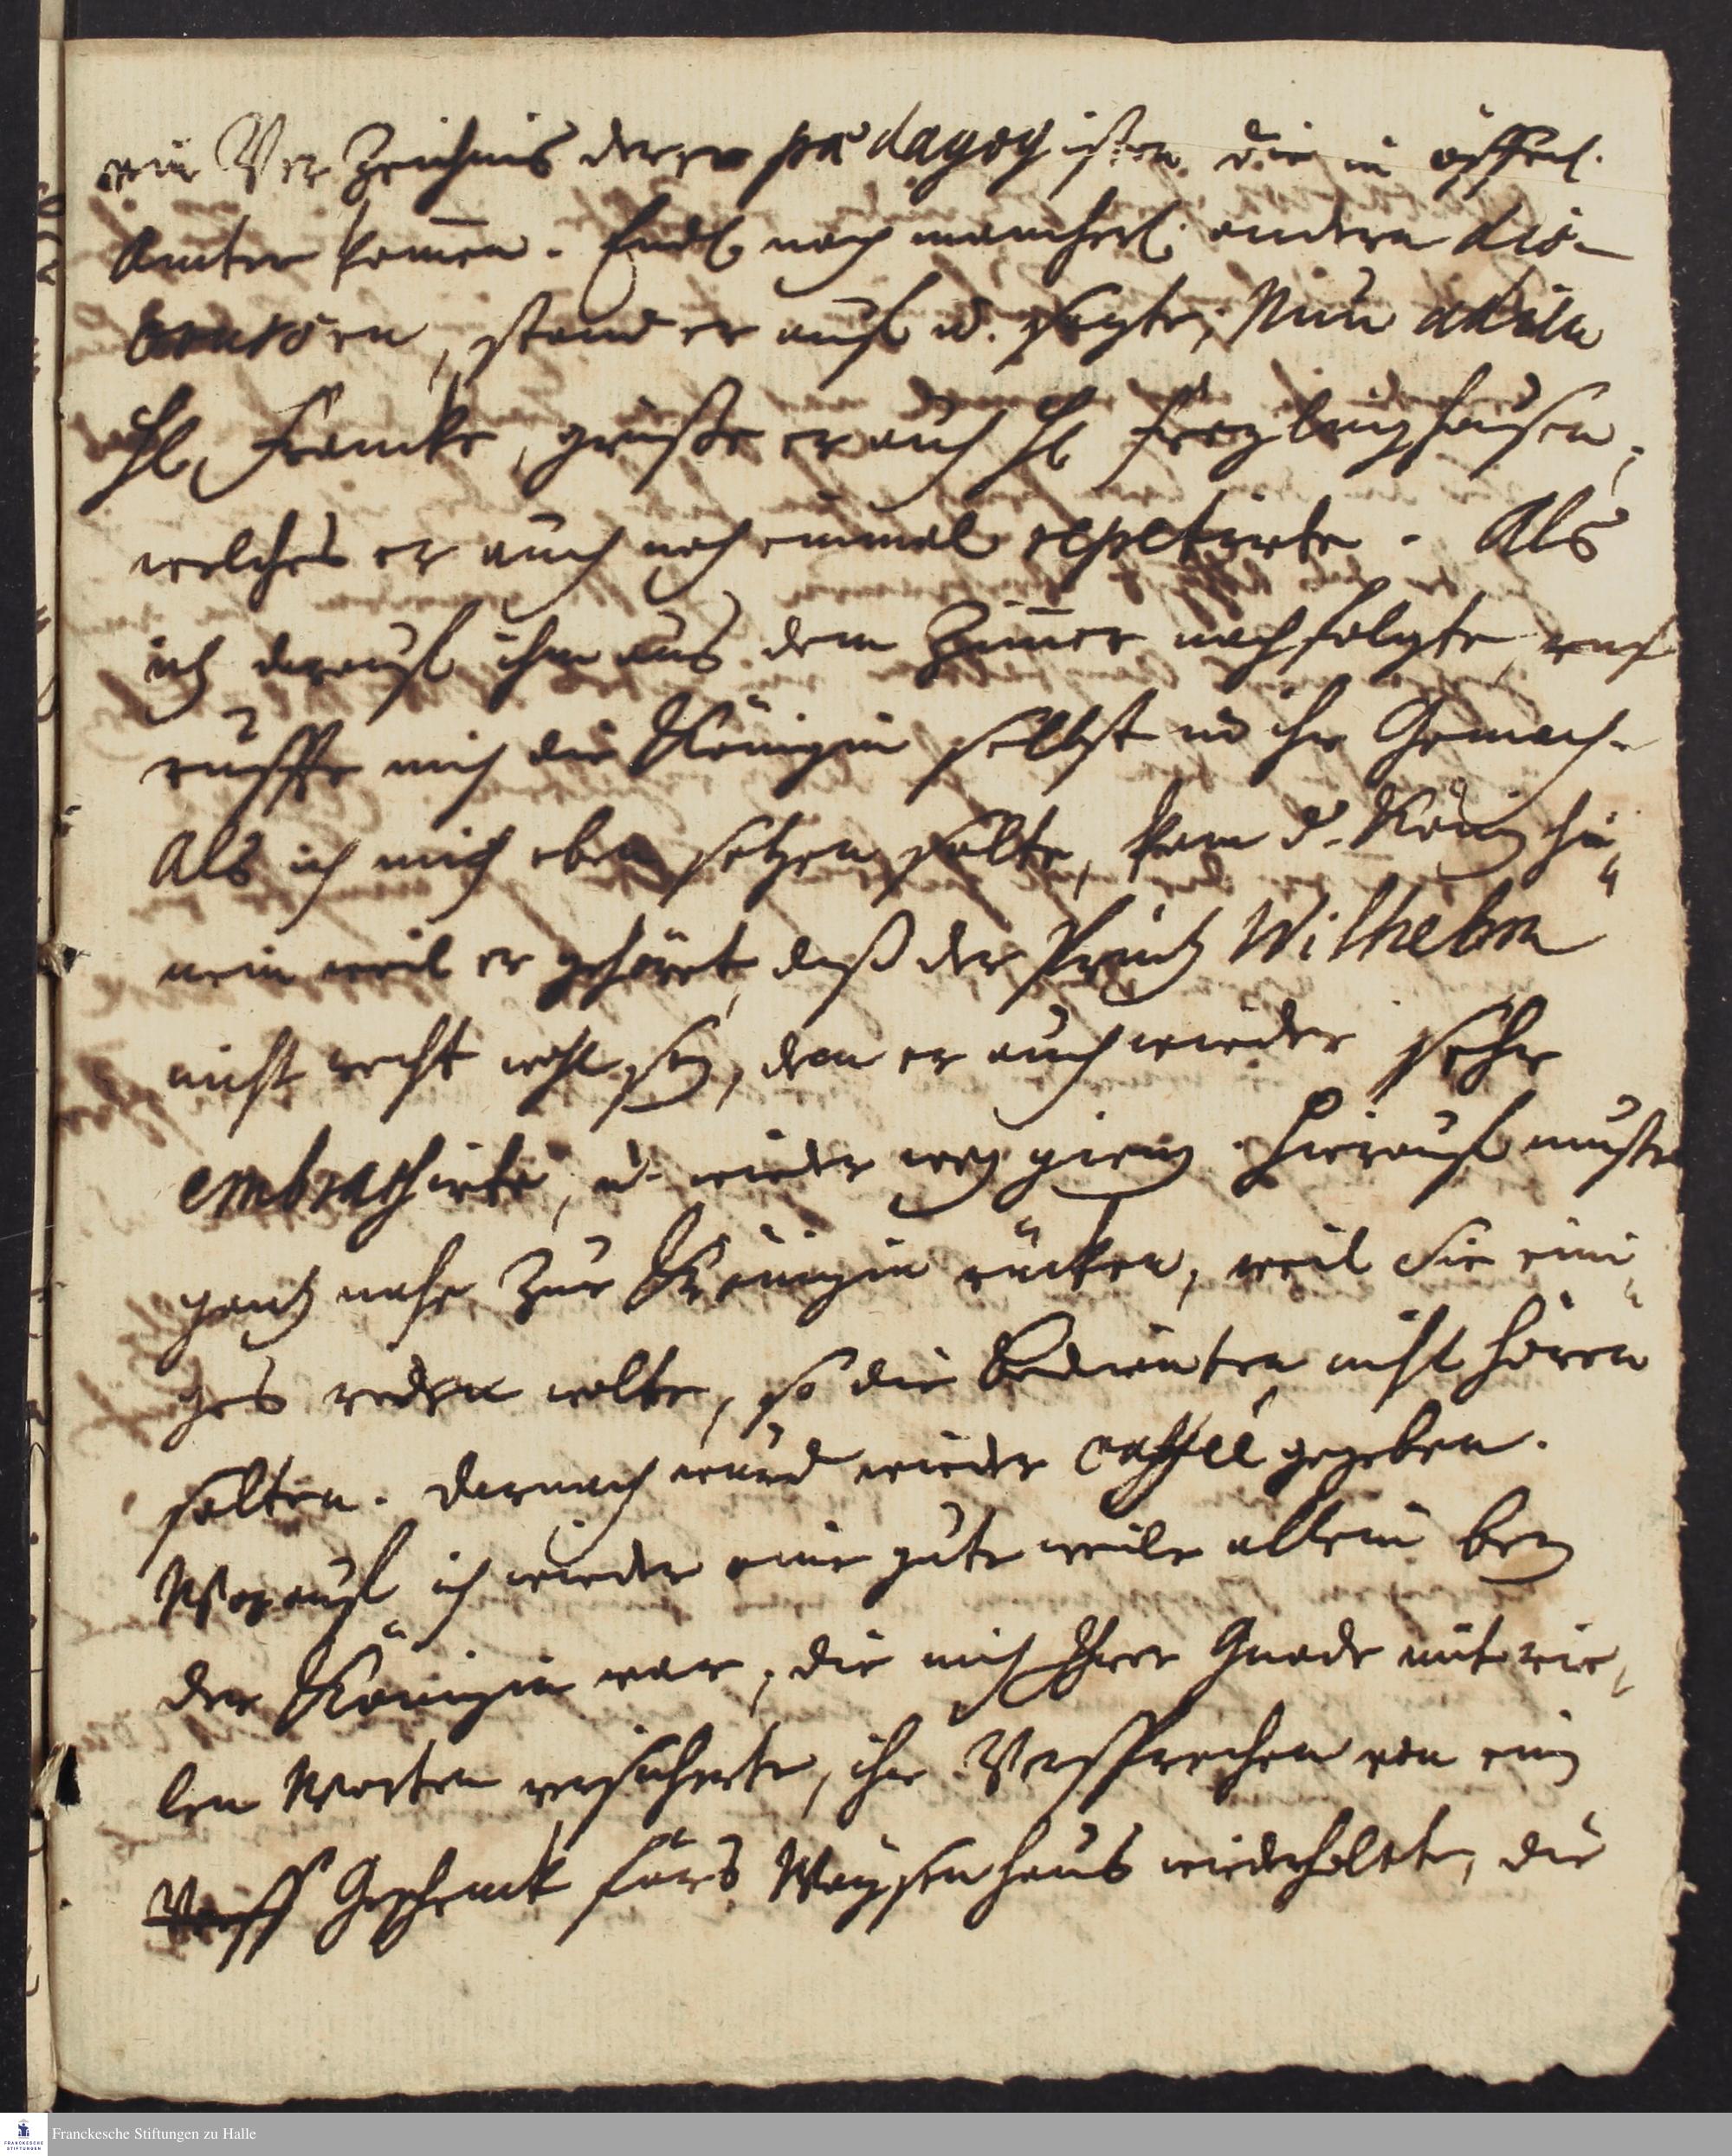 ein Verzeichnis derer pädagogisten die in öffentl.
Ämter kommen. Endl. nach mancherl. andern dis-
coursen, stand er auf u. sagte, Nun adieu
H. Francke, grüße er auch H. Freylinghausen,
welches er auch noch einmal repetirte. Als
ich darauf ihm aus dem Zimmer nachfolgte,
ruffte mich die Königin selbst in ihr Gemach.
Als ich mich eben setzen solte, kam d. König hi-
nein weil er gehöret, daß der Printz Wilhelm
nicht recht wohl sey, den er auch wieder sehr
embrassirte, u. wieder weg gieng. Hierauf muste
gantz nahe zur Königin rücken, weil Sie eini-
ges reden wolte, so die Bedienten nicht hören
solten. Darnach wurd wieder caffée gegeben.
Worauf ich wieder eine gute weile allein bey
der Königin war, die mich Ihrer Gnade mit vie-
len Worten versicherte, ihr Versprechen von ein
Geschenck fürs Waysenhaus wiederholete, die
Franckesche Stiftungen zu Halle